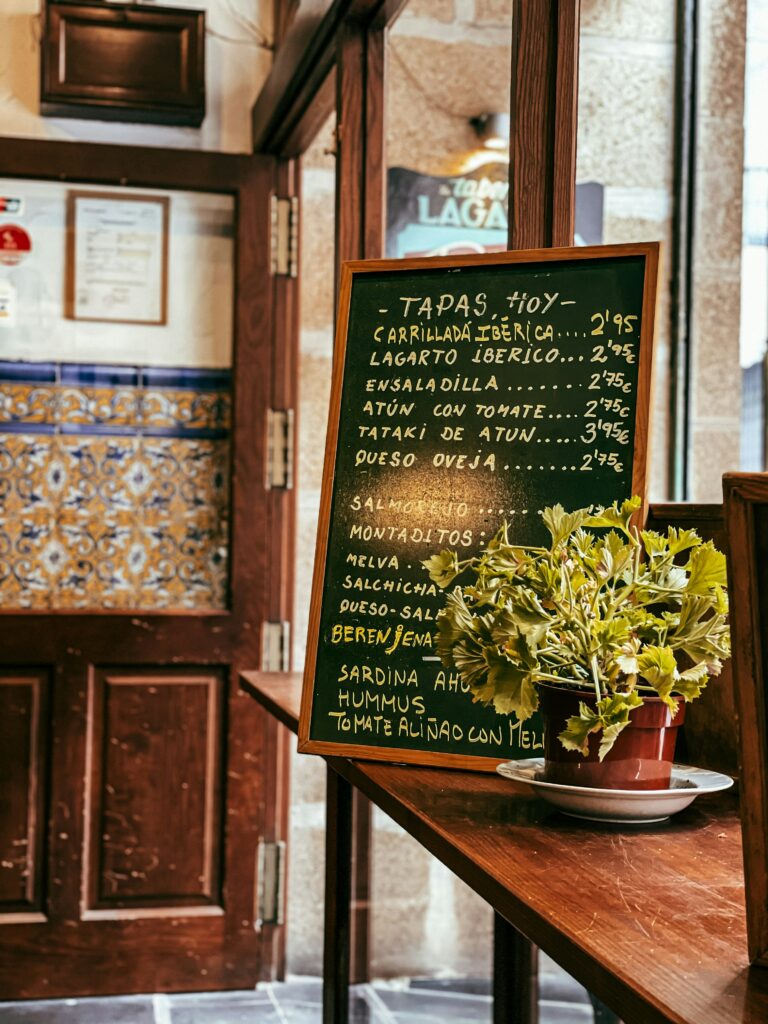 LAGA
- TAPAS, HOY -
CARRILLADA IBÉRICA.... 2'95
LAGARTO IBERICO... 2'95€
ENSALADILLA ....... 2'75€
ATÚN CON TOMATE.... 2'75€
TATAKI DE ATUN..... 3'95€
QUESO OVEJA ....... 2'75€
SALMOREJO ......
MONTADITOS:
MELVA..
SALCHICHA-
QUESO-SAL
BERENJENA
SARDINA AHU
HUMMUS
TOMATE ALIÑAO CON MEL